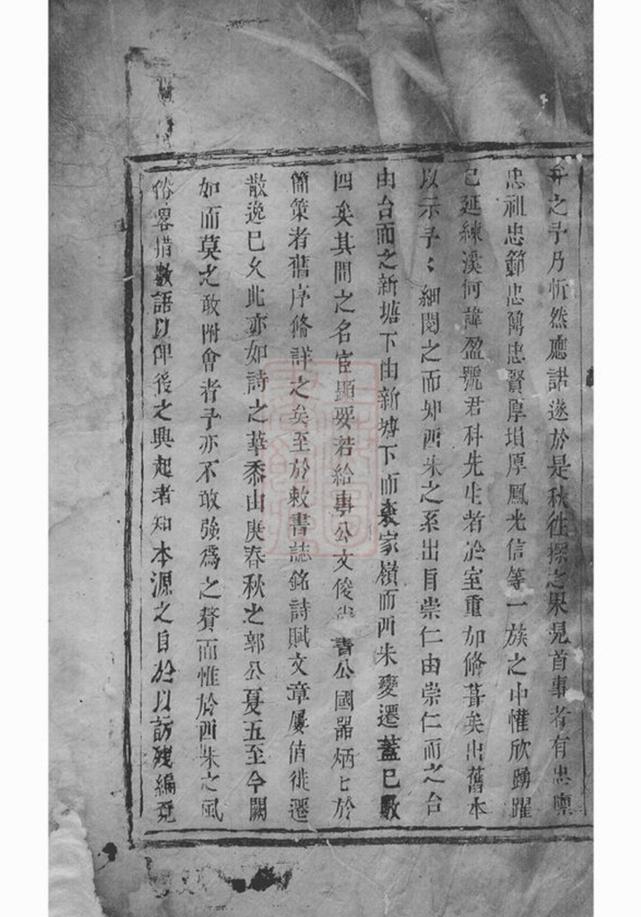 之予乃忻然應諾遂於是秋徃探之果見首事者有忠
忠祖忠節忠萬忠賢厚塤厚鳳光信等一族之中懽欣踴躍
已延練溪何諱盈號君科先生者於室重加脩葺矣出舊本
以示予〻細閱之而知西朱之系出自崇仁由崇仁而之台
由台而之新塘下由新塘下而袁家嶺而西朱變遷蓋已數
四矣其間之名宦顯要若給事公文俊尚書公國器炳〻於
簡策者舊序脩詳之矣至於敕書誌銘詩賦文章屢值徙遷
散逸已久此亦如詩之華黍由庚春秋之郭公夏五至今闕
如而莫之敢附會者予亦不敢強爲之贅而惟於西朱之風
俗畧措數語以俾後之興起者知本源之自於以訪殘編